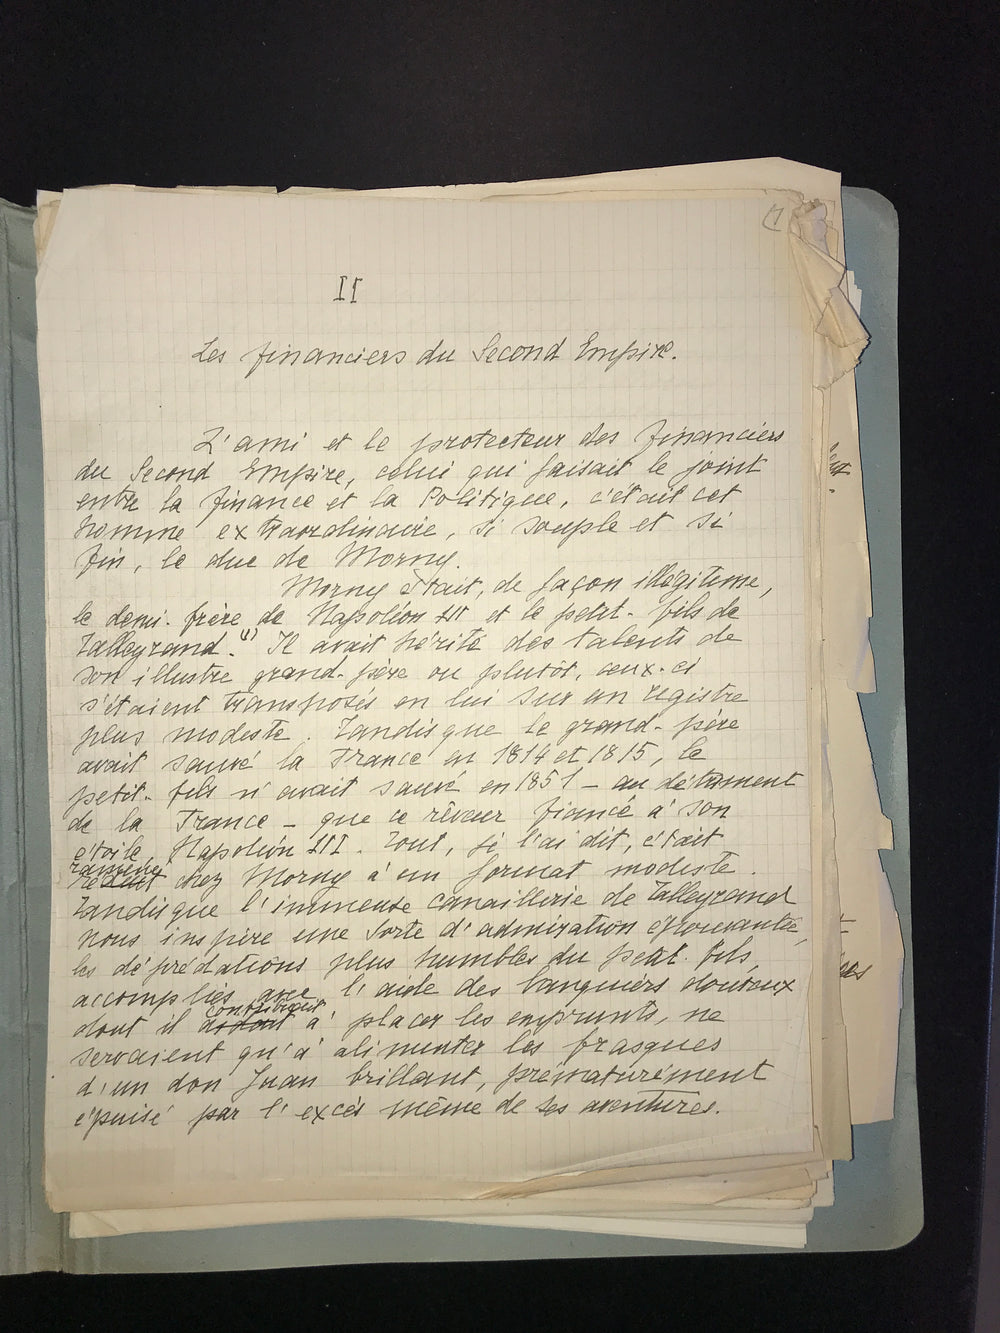 II
Les financiers du Second Empire.
L'ami et le protecteur des financiers
du Second Empire, celui qui faisait le joint
entre la finance et la Politique, c'était cet
homme extraordinaire, si souple et si
fin, le duc de Morny.
Morny était, de façon illégitime,
le demi-frère de Napoléon III et le petit-fils de
Talleyrand.(1) Il avait hérité des talents de
son illustre grand-père ou plutôt, ceux-ci
s'étaient transposés en lui sur un registre
plus modeste. Tandis que le grand-père
avait sauvé la France en 1814 et 1815, le
petit-fils n'avait sauvé en 1851 - au détriment
de la France - que ce rêveur fiancé à son
étoile, Napoléon III. Tout, je l'ai dit, était
ramené
réduit chez Morny à un format modeste.
Tandis que l'immense canaillerie de Talleyrand
nous inspire une sorte d'admiration épouvantée,
les déprédations plus humbles du petit-fils,
accomplies avec l'aide des banquiers douteux
contribuait
dont il aidait à placer les emprunts, ne
servaient qu'à alimenter les frasques
d'un don Juan brillant, prématurément
épuisé par l'excès même de ses aventures.